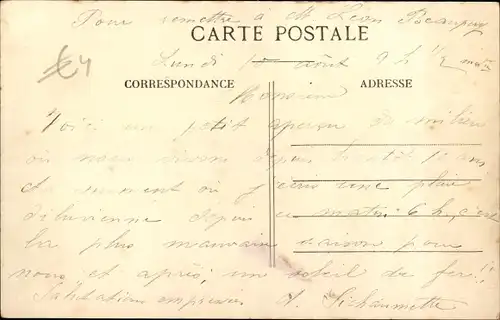 Pour remettre à M Léon Beaupuy
CARTE POSTALE
Lundi 10 août 9 h 1/2
CORRESPONDANCE ADRESSE
Monsieur
Voici un petit aperçu du milieu
où nous vivons depuis bientôt 10 ans
Au moment où j'écris une pluie
diluvienne depuis ce matin 6 h, c'est
la plus mauvaise saison pour
nous et après, un soleil de fer!!
Salutations empressées